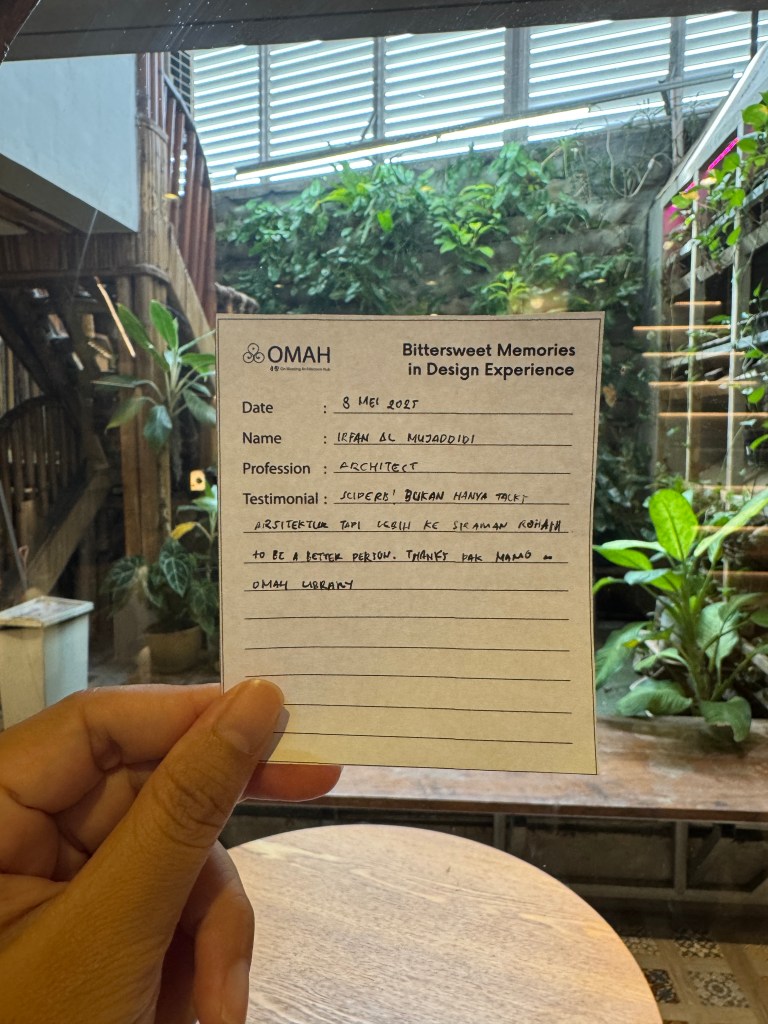 OMAH
Bittersweet Memories
in Design Experience
Date : 8 MEI 2025
Name : IRFAN AL MUJADDIDI
Profession : ARCHITECT
Testimonial : BUKAN HANYA TALKS
ARSITEKTUR TAPI LEBIH KE SIRAMAN ROHANI
TO BE A BETTER PERSON. THANKS PAK
OMAH LIBRARY